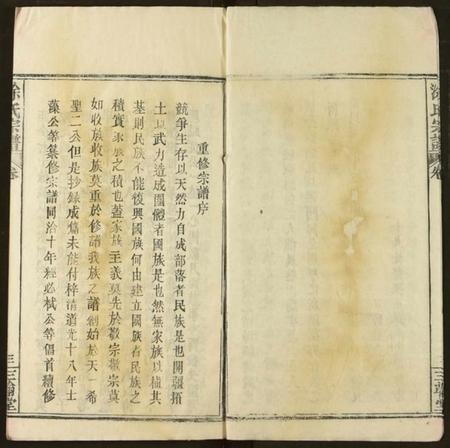 重修宗譜序
競爭生存以天然力自成部落者民族是也開疆拓
土以武力造成團體者國族是也然無家族以植其
基則民族不能復興國族何由建立國族者民族之
積實家族之積也蓋家族主義莫先於敬宗敬宗莫
如收族收族莫重於修譜我族之譜創始族天一希
聖二公但是抄錄成篇未能付梓清道光十八年士
藻公等纂修宗譜同治十年經必栻公等倡首續修
涂氏宗譜
卷
三
涂氏宗譜
卷